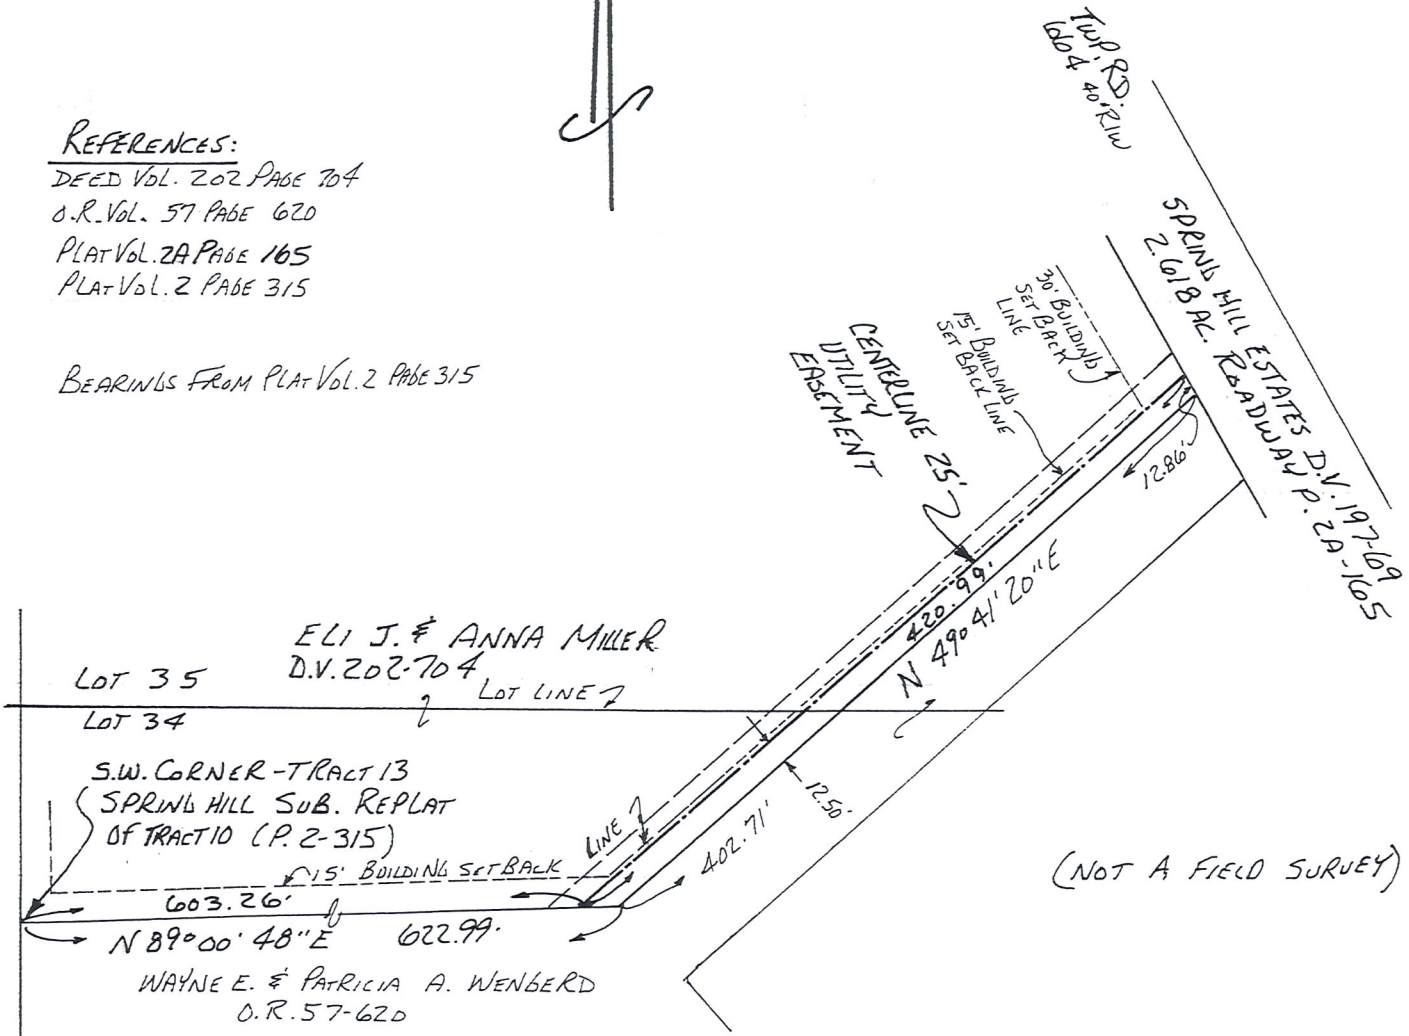 REFERENCES:
DEED VOL. 202 PAGE 704
O.R. VOL. 57 PAGE 620
PLAT VOL. 2A PAGE 165
PLAT VOL. 2 PAGE 315
BEARINGS FROM PLAT VOL. 2 PAGE 315
TWP. RD.
606A 40' R/W
SPRING HILL ESTATES D.V. 197-69
2.618 AC. ROADWAY P. 2A-165
30' BUILDING
SET BACK
LINE
15' BUILDING
SET BACK LINE
CENTERLINE 25'
UTILITY
EASEMENT
12.86'
420.99'
N 49° 41' 20" E
ELI J. & ANNA MILLER
D.V. 202-704
LOT 35
LOT LINE
LOT 34
S.W. CORNER - TRACT 13
SPRING HILL SUB. REPLAT
OF TRACT 10 (P. 2-315)
LINE
12.50'
402.71'
15' BUILDING SET BACK
603.26'
N 89° 00' 48" E 622.99'
WAYNE E. & PATRICIA A. WENGERD
O.R. 57-620
(NOT A FIELD SURVEY)